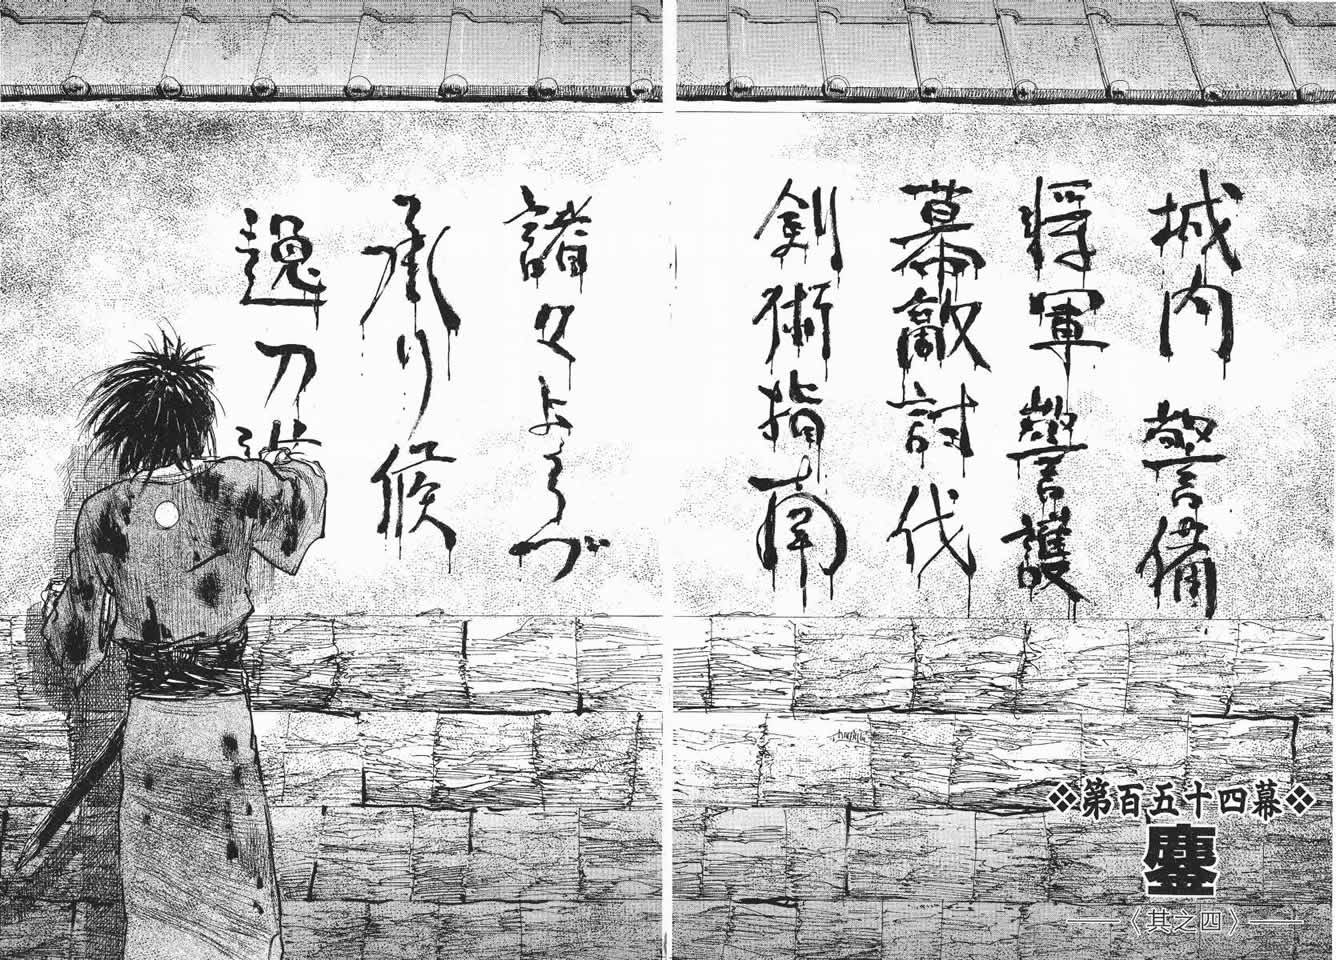 城内 警備
将軍 警護
幕敵討伐
剣術指南
諸々よろづ
承り候
逸刀流
❖第百五十四幕❖
鏖
《其之四》